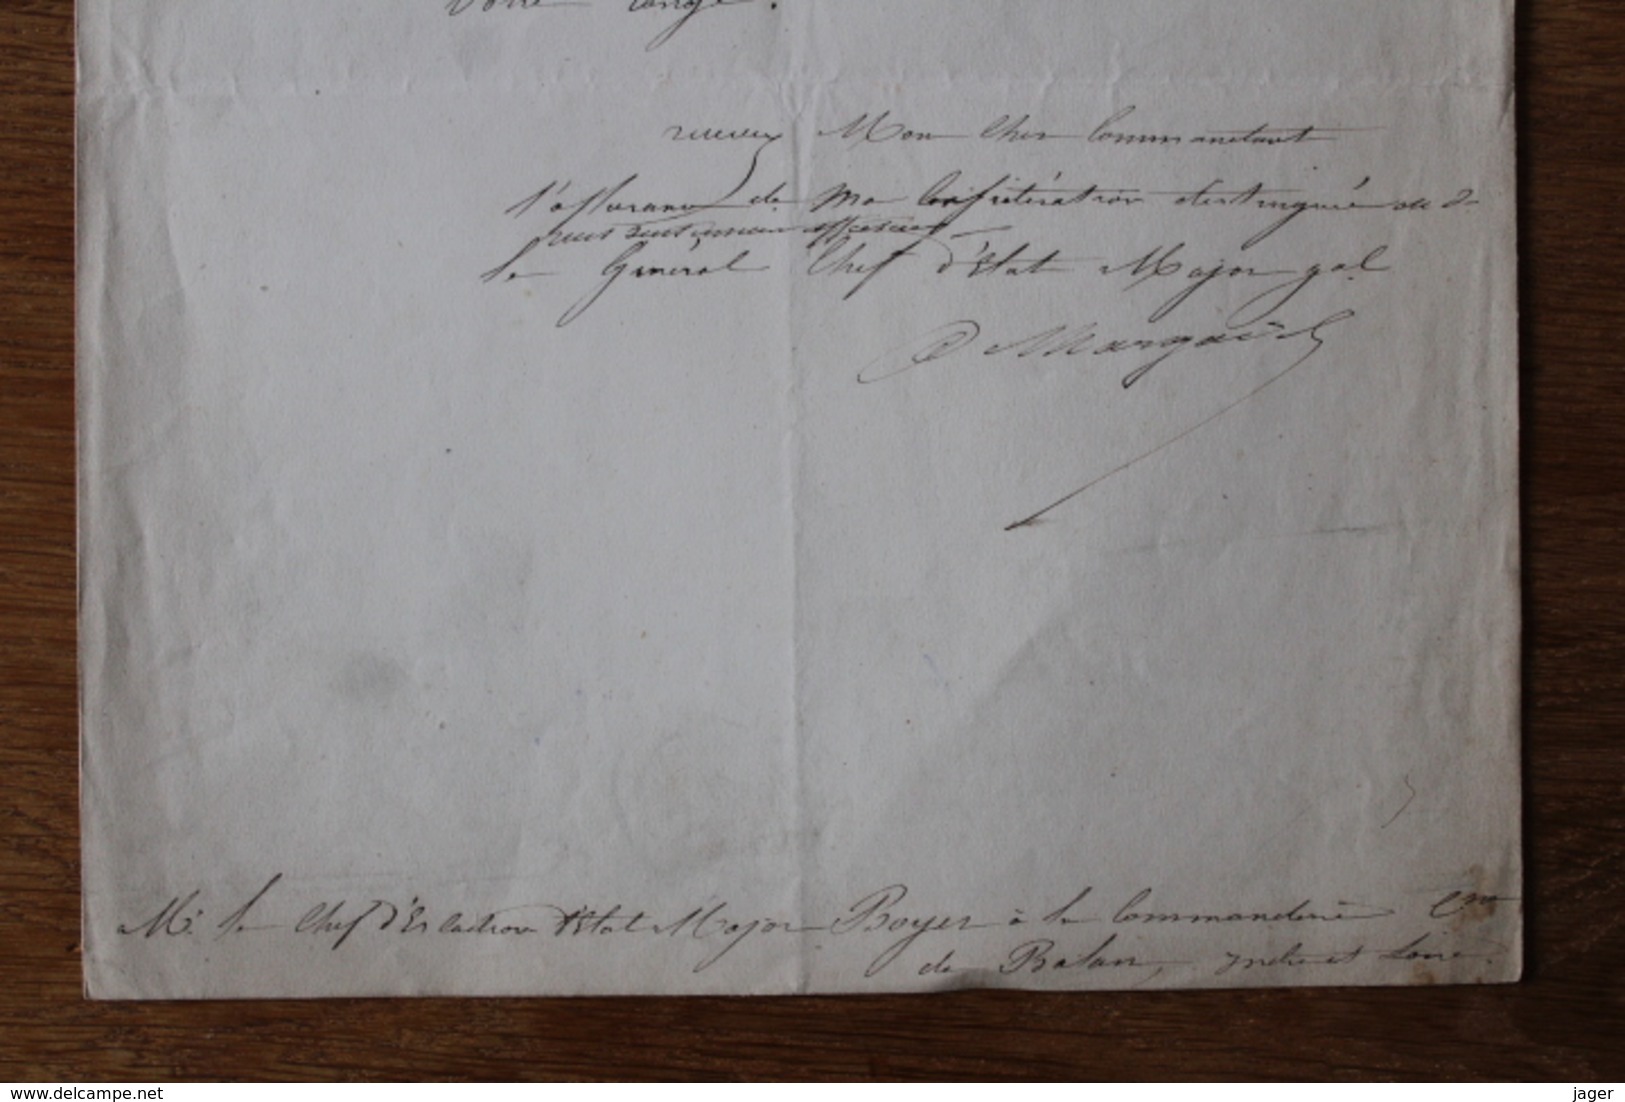 votre congé.
recevez Mon Cher Commandant
l'assurance de ma Considération distinguée et de
mes sentiments affectueux
le Général Chef d'Etat Major gal
Mr le Chef d'Escadron d'Etat Major Boyer à la Commanderie Cne
de Balan, Indre et Loire.
www.delcampe.net
jager